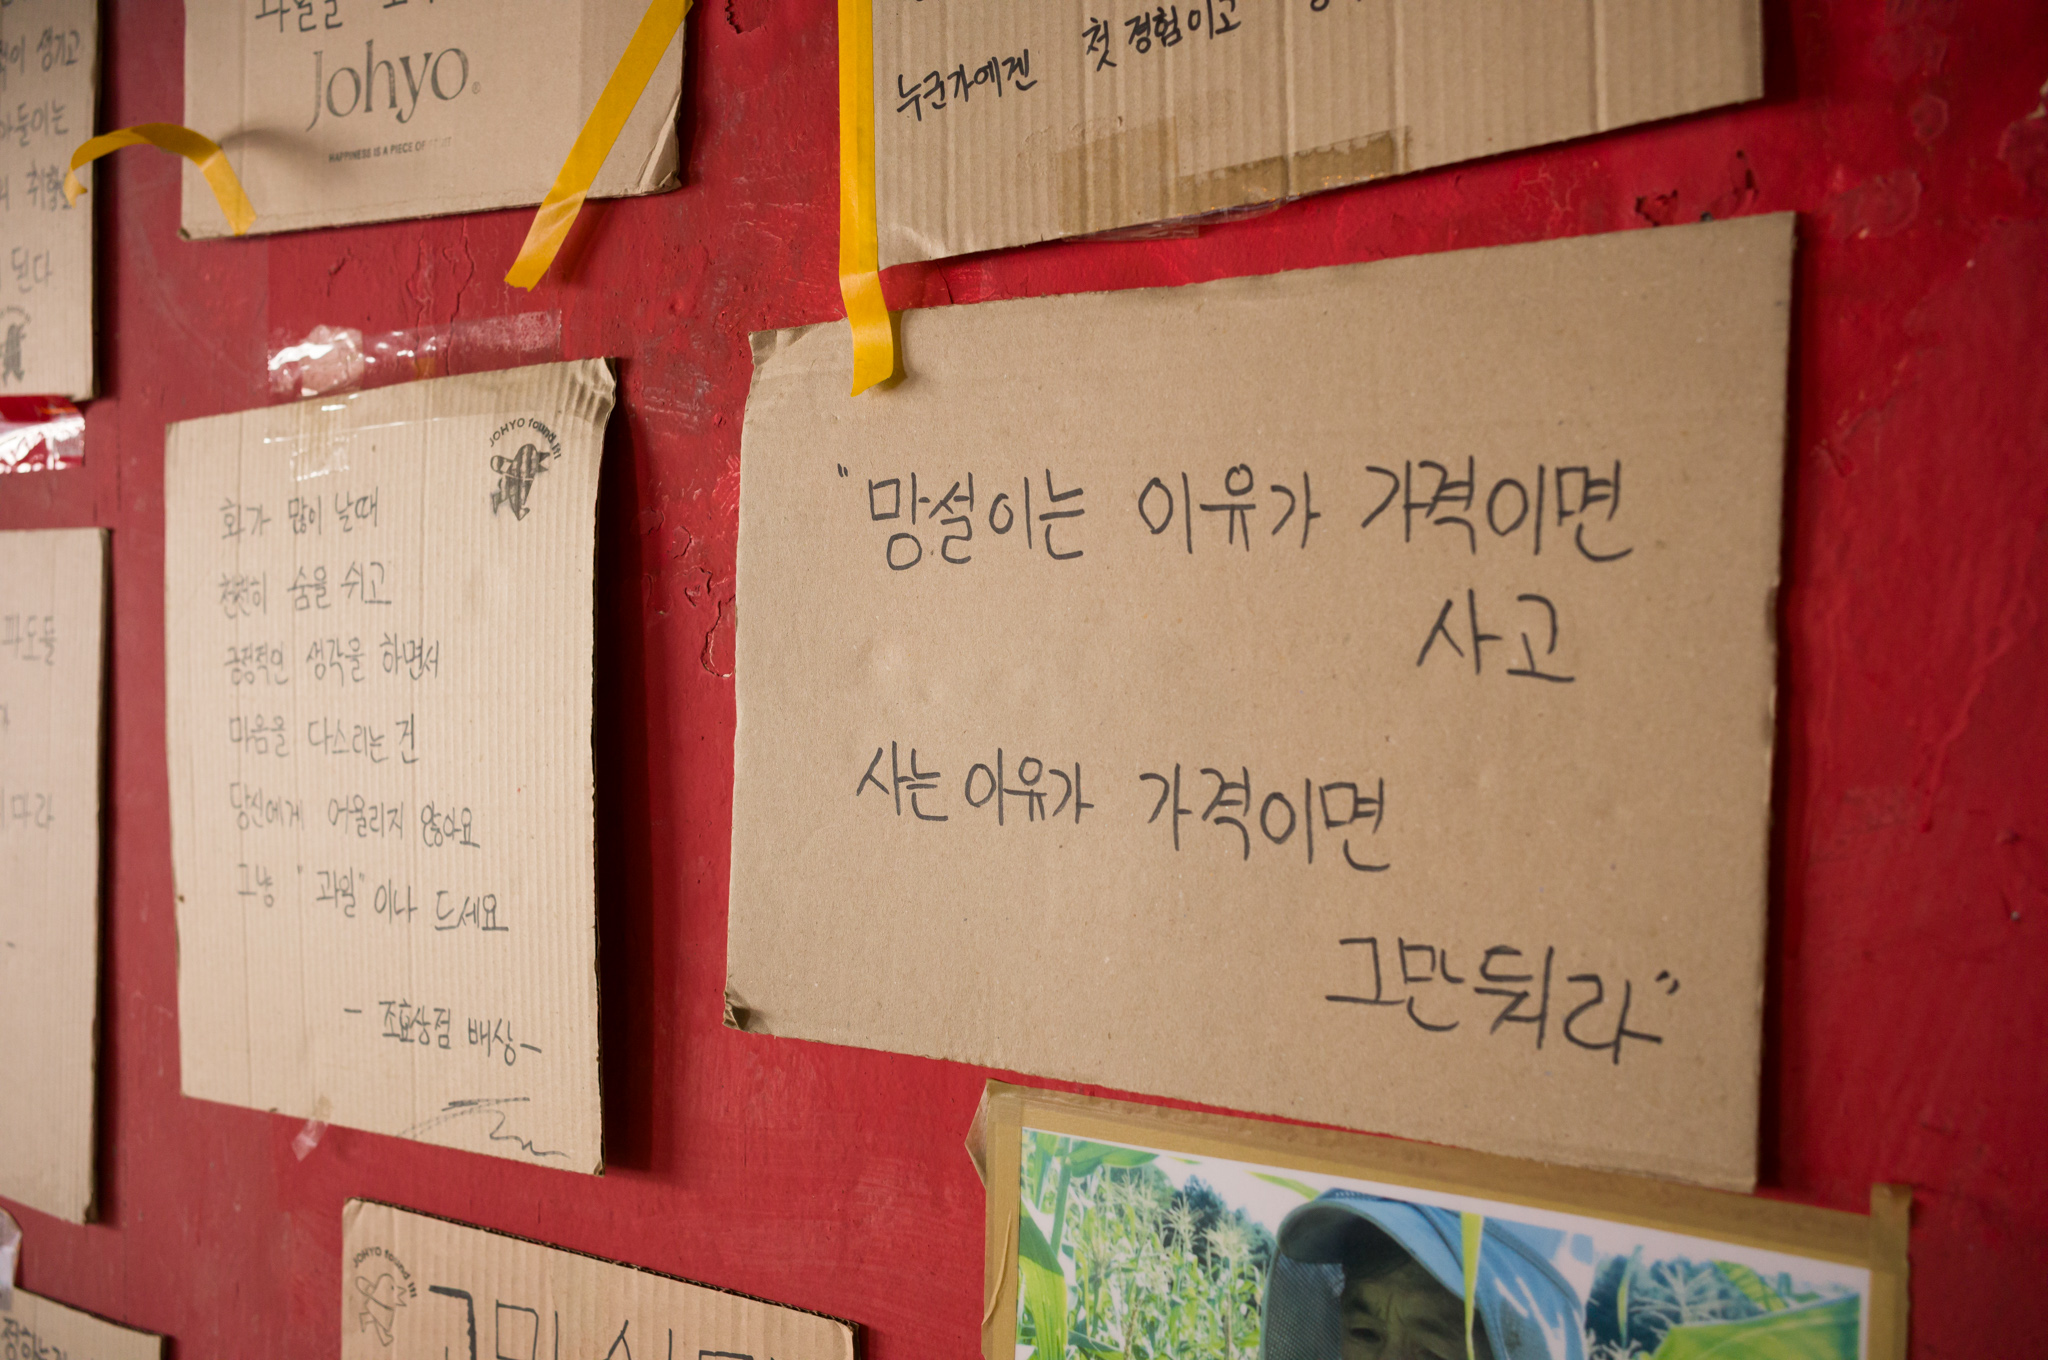 이 생기고
된다
Johyo®
HAPPINESS IS A PIECE OF
누군가에겐 첫 경험이고
JOHYO found it!
화가 많이 날때
천천히 숨을 쉬고
긍정적인 생각을 하면서
마음을 다스리는 건
당신에게 어울리지 않아요
그냥 "과월"이나 드세요
- 조효상점 배상-
"망설이는 이유가 가격이면
사고
사는 이유가 가격이면
그만둬라"
파도들
마라
JOHYO found it!